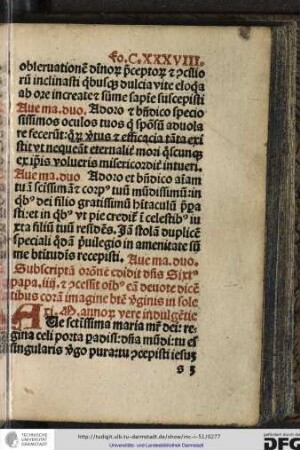 Fo. C. XXXVIII.
obseruationē diuoꝝ p̄ceptoꝝ ⁊ ꝯsilio
rū inclinasti q̄busqꝫ dulcia vite eloq̄a
ab ore increate ⁊ sūme sapīe suscepisti
Aue ma. duo. Adoro ⁊ bn̄dico specio
sissimos oculos tuos
re fecerūt: ⁊ efficacia tāta exi
stit vt nequeāt eternalit̓ mori q̄scunqꝫ
ex ip̄is volueris misericordit̓ intueri.
Aue ma. duo Adoro et bn̄dico aīam
tuā scīssimā ⁊ corpꝰ tuū mūdissimū: in
qbꝰ dei filio gratissimū hītaculū p̄pa
sti: et in qbꝰ vt pie credit̓ ī celestibꝰ iu
xta filiū tuū resides. Jā stolā duplicē
speciali q̄dā p̄uilegio in amenitate sū
me btitudīs recepisti. Aue ma. duo.
Subscriptā orōnē edidit dn̄s Sixtꝰ
papa. iiij. ⁊ ꝯcessit oībꝰ eā deuote dicē
tibus corā imagine btē v̄ginis in sole
xi. M. annoꝝ vere indulgētie
AUe sctissima maria mr̄ dei: re
gina celi porta padisi: dn̄a mūdi: tu es
singularis v̓go pura: tu ꝯcepisti iesuꝫ
s 5
TECHNISCHE UNIVERSITÄT DARMSTADT
http://tudigit.ulb.tu-darmstadt.de/show/inc-i-51/0277
Universitäts- und Landesbibliothek Darmstadt
gefördert durch die
DFG